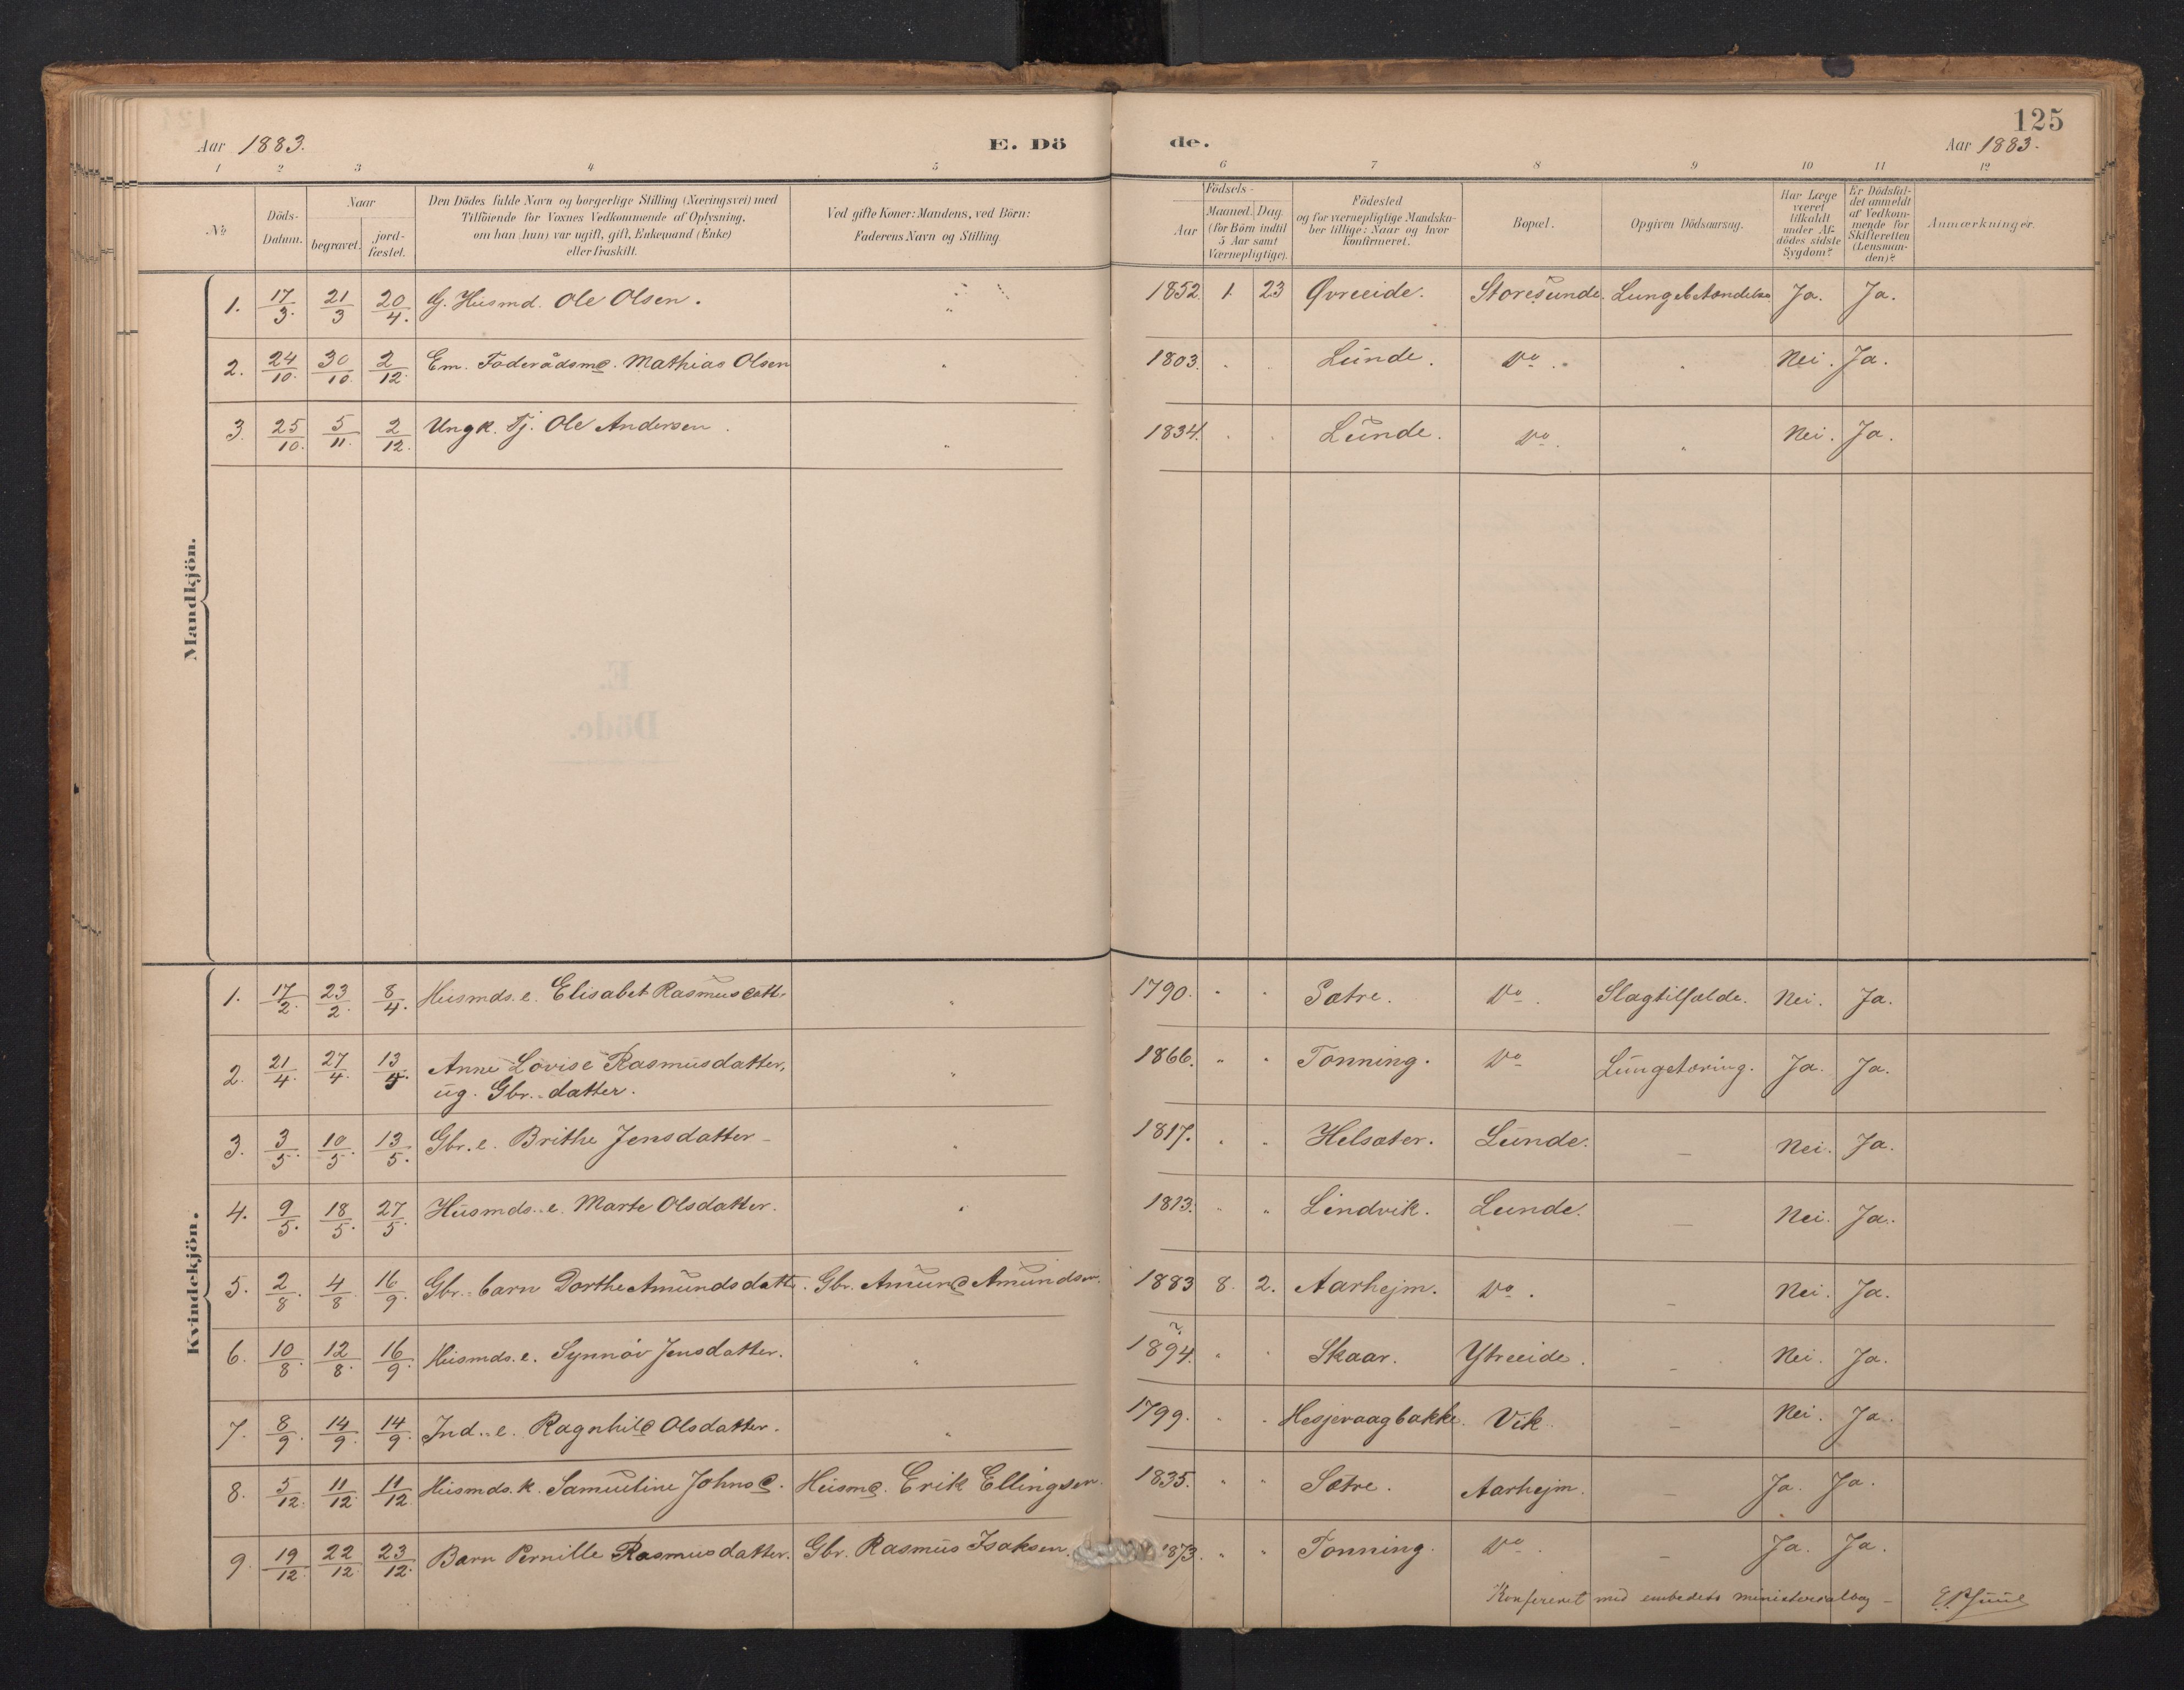 125
Aar 1883. E. Dö de. Aar 1883.
1 2 3 4 5 6 7 8 9 10 11 12
№
Döds-Datum.
Naar
begravet.
jord-fæstet.
Den Dödes fulde Navn og borgerlige Stilling (Næringsvei) med
Tilföiende for Voxnes Vedkommende af Oplysning,
om han (hun) var ugift, gift, Enkemand (Enke)
eller fraskilt.
Ved gifte Koner: Mandens, ved Börn:
Faderens Navn og Stilling.
Födsels-
Aar
Maaned. Dag.
(for Börn indtil
5 Aar samt
Værnepligtige).
Födested
og for værnepligtige Mandska-
ber tillige: Naar og hvor
konfirmeret.
Bopæl.
Opgiven Dödsaarsag.
Har Læge
været
tilkaldt
under Af-
dödes sidste
Sygdom?
Er Dödsfal-
det anmeldt
af Vedkom-
mende for
Skifteretten
(Lensman-
den)?
Anmærkninger.
Mandkjön.
1. 17/3. 21/3 20/4. G. Husmd. Ole Olsen. " 1852. 1. 23 Øvreeide. Storesunde. Lungebetændelse Ja. Ja.
2. 24/10. 30/10. 2/12. Em. Föderådsmd. Mathias Olsen " 1803. " " Lunde. Do. " Nei. Ja.
3. 25/10. 5/11. 2/12. Ungk. Tj. Ole Andersen. " 1834. " " Lunde. Do. " Nei. Ja.
E.
Döde.
Kvindekjön.
1. 17/2. 23/2. 8/4. Husmds. e. Elisabet Rasmusdatt. " 1790. " " Sætre. Do. Slagtilfælde. Nei. Ja.
2. 21/4. 27/4. 13/5. Anne Lovise Rasmusdatter, " 1866. " " Tonning. Do Lungetæring. Ja. Ja.
ug. Gbr. datter.
3. 3/5. 10/5. 13/5. Gbr. e. Brithe Jensdatter " 1817. " " Helsæter. Lunde. — Nei. Ja.
4. 9/5. 18/5. 27/5. Husmds. e. Marte Olsdatter. " 1813. " " Lindvik. Lunde. — Nei. Ja.
5. 2/8. 4/8 16/9. Gbr. barn Dorthe Amundsdatter. Gbr. Amund Amundsen. 1883 8. 2. Aarhejm. Do. — Nei. Ja.
6. 10/8. 12/8. 16/9. Husmds. e. Synnöv Jensdatter. " 1894. ? " " Skaar. Ytreeide. — Nei. Ja.
7. 8/9. 14/9. 14/9. Ind. e. Ragnhild Olsdatter. " 1799. " " Hesjevaagbakke. Vik. — Nei. Ja.
8. 5/12. 11/12. 11/12. Husmds. k. Samueline Johnsd. Husmd. Erik Ellingsen. 1835. " " Sætre. Aarhejm. — Ja. Ja.
9. 19/12. 22/12. 23/12. Barn Pernille Rasmusdatter. Gbr. Rasmus Isaksen. 1873. " " Tonning. Do. — Ja. Ja.
Konfereret med embedets ministerialbog —